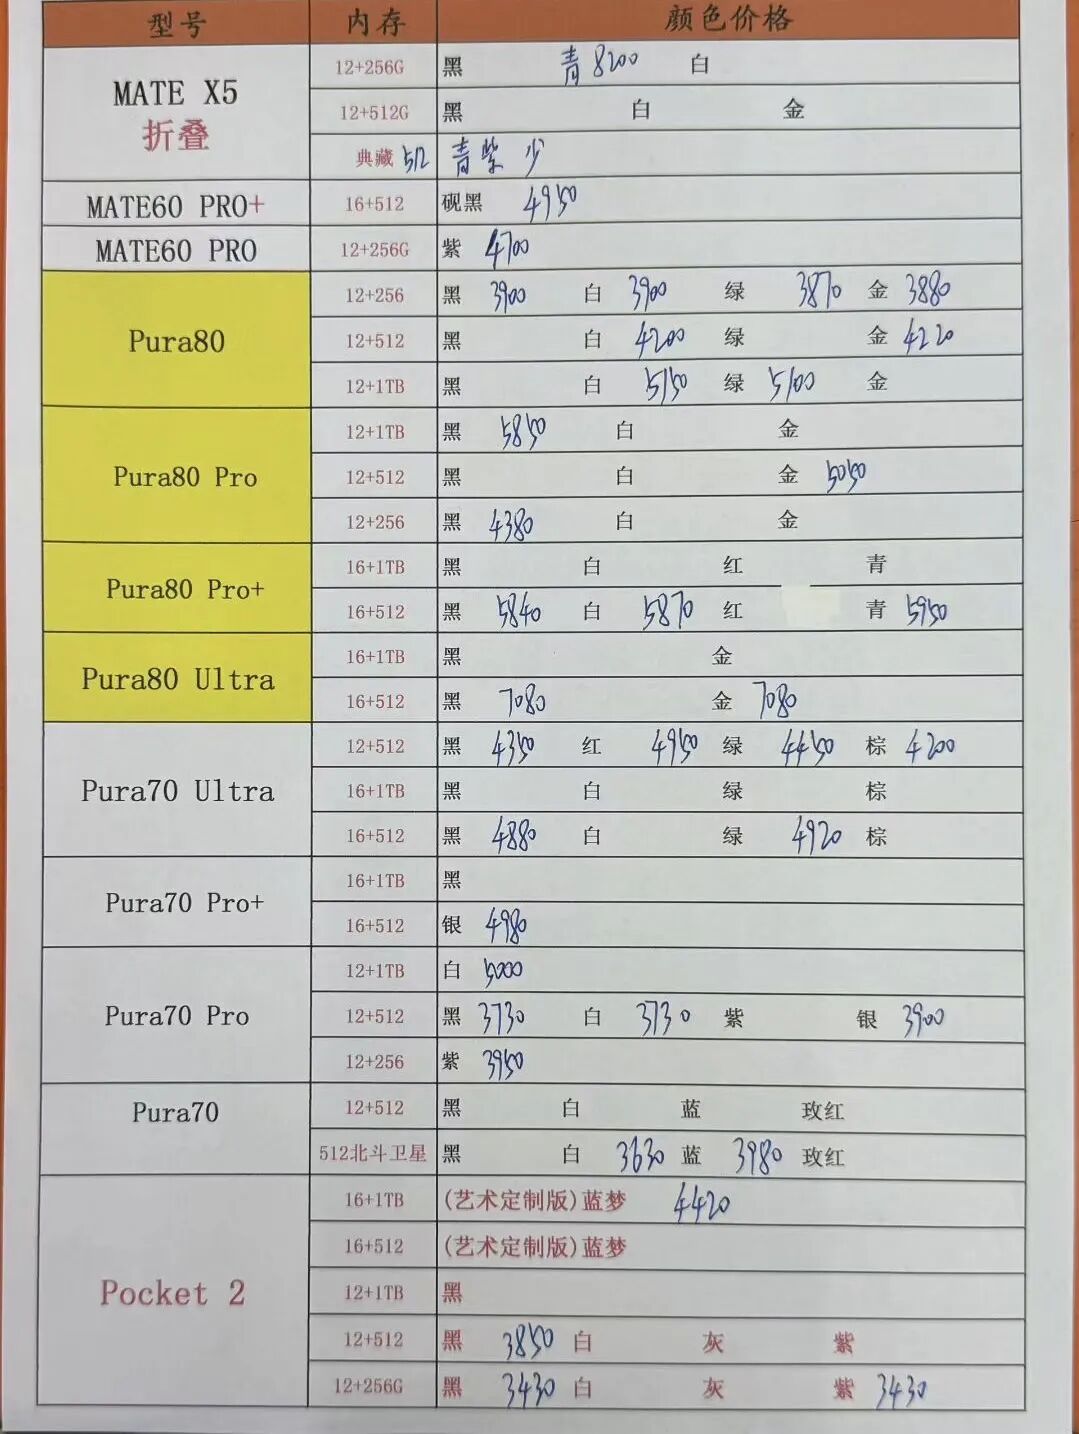 型号 内存 颜色价格
MATE X5 折叠 12+256G 黑 青 8200 白
12+512G 黑 白 金
典藏 512 青紫 少
MATE60 PRO+ 16+512 砚黑 4950
MATE60 PRO 12+256G 紫 4700
Pura80 12+256 黑 3900 白 3900 绿 3870 金 3880
12+512 黑 白 4200 绿 金 4220
12+1TB 黑 白 5150 绿 5100 金
Pura80 Pro 12+1TB 黑 5850 白 金
12+512 黑 白 金 5050
12+256 黑 4380 白 金
Pura80 Pro+ 16+1TB 黑 白 红 青
16+512 黑 5840 白 5870 红 青 5950
Pura80 Ultra 16+1TB 黑 金
16+512 黑 7080 金 7080
Pura70 Ultra 12+512 黑 4350 红 4950 绿 4450 棕 4200
16+1TB 黑 白 绿 棕
16+512 黑 4880 白 绿 4920 棕
Pura70 Pro+ 16+1TB 黑
16+512 银 4980
Pura70 Pro 12+1TB 白 5000
12+512 黑 3730 白 3730 紫 银 3900
12+256 紫 3950
Pura70 12+512 黑 白 蓝 玫红
512北斗卫星 黑 白 3630 蓝 3980 玫红
Pocket 2 16+1TB (艺术定制版)蓝梦 4420
16+512 (艺术定制版)蓝梦
12+1TB 黑
12+512 黑 3850 白 灰 紫
12+256G 黑 3430 白 灰 紫 3430